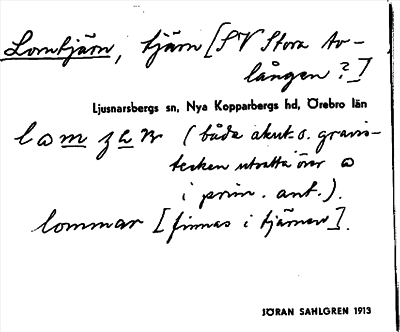 Lomtjärn, tjärn [SV Stora Av-
lången?]
Ljusnarsbergs sn, Nya Kopparbergs hd, Örebro län
(båda akut. o. gravis-
tecken utsatta över ɷ
i prim. ant.).
lommar [finnas i tjärnen].
JÖRAN SAHLGREN 1913